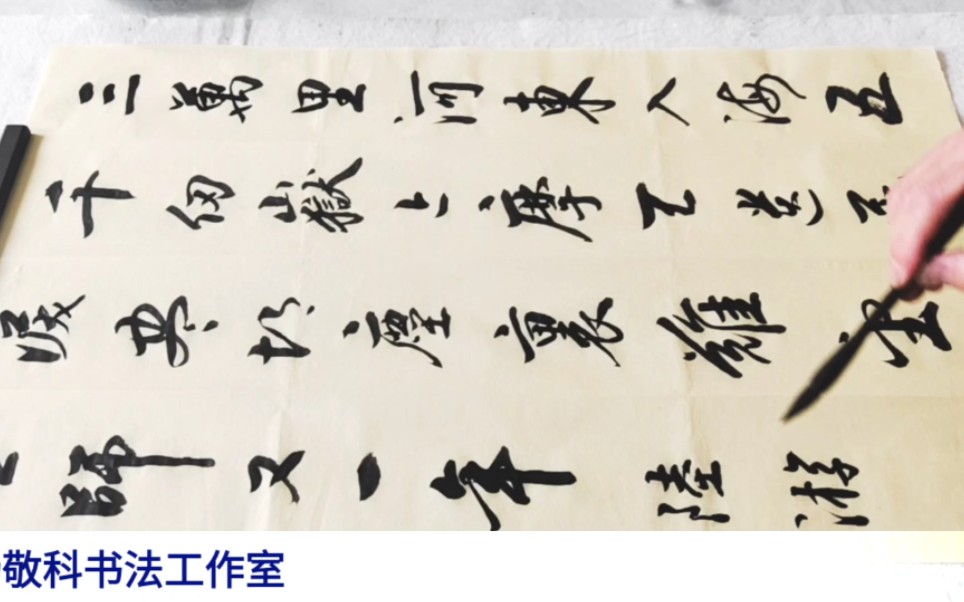 三萬里河東入海五
千仞嶽上摩天遺
淚盡塵裏望
師又一年陸游
敬科书法工作室